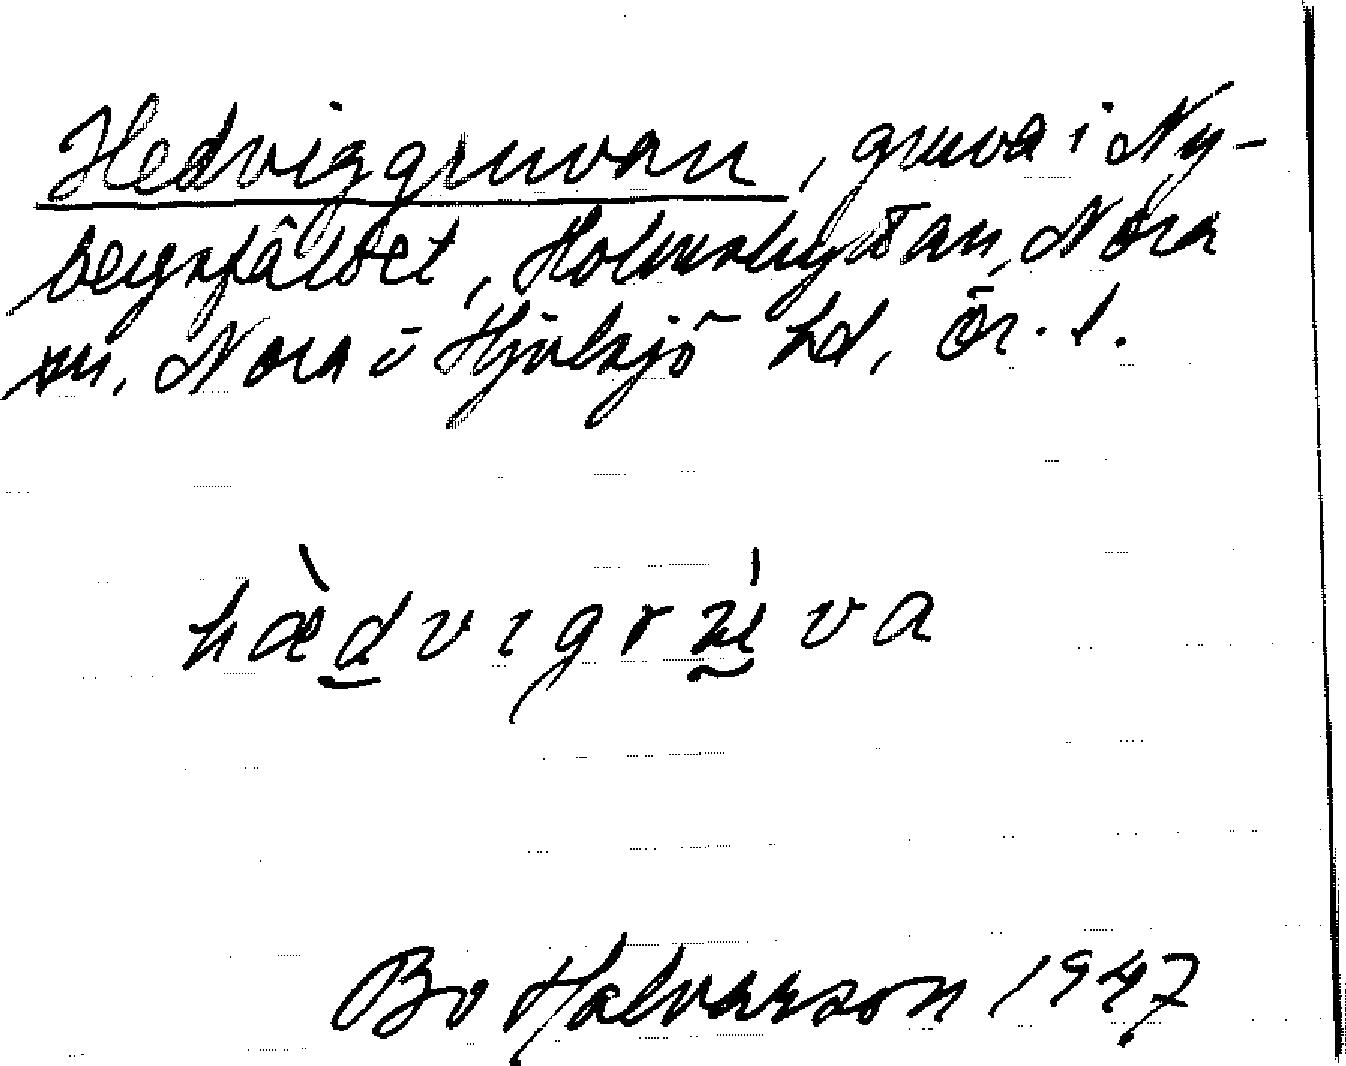 Hedviggruvan, gruva i Ny-
bergsfältet, Holmshyttan, Nora
sn, Nora o Hjulsjö hd, Ör. l.
hæ̀dvıgrʉ́va
Bo Halvarson 1947